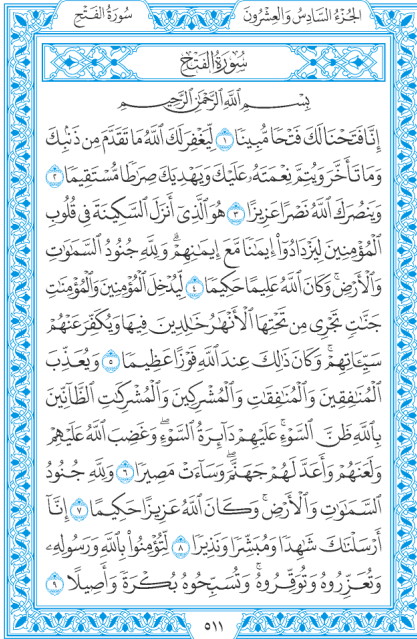 الجُزْءُ السَّادِسُ وَالعِشْرُونَ
سُورَةُ الفَتْحِ
سُورَةُ الفَتْحِ
بِسْمِ اللَّهِ الرَّحْمَٰنِ الرَّحِيمِ
إِنَّا فَتَحْنَا لَكَ فَتْحًا مُّبِينًا ١ لِّيَغْفِرَ لَكَ اللَّهُ مَا تَقَدَّمَ مِن ذَنۢبِكَ
وَمَا تَأَخَّرَ وَيُتِمَّ نِعْمَتَهُۥ عَلَيْكَ وَيَهْدِيَكَ صِرَٰطًا مُّسْتَقِيمًا ٢
وَيَنصُرَكَ اللَّهُ نَصْرًا عَزِيزًا ٣ هُوَ الَّذِىٓ أَنزَلَ السَّكِينَةَ فِى قُلُوبِ
الْمُؤْمِنِينَ لِيَزْدَادُوٓا۟ إِيمَٰنًا مَّعَ إِيمَٰنِهِمْ ۗ وَلِلَّهِ جُنُودُ السَّمَٰوَٰتِ
وَالْأَرْضِ ۚ وَكَانَ اللَّهُ عَلِيمًا حَكِيمًا ٤ لِّيُدْخِلَ الْمُؤْمِنِينَ وَالْمُؤْمِنَٰتِ
جَنَّٰتٍ تَجْرِى مِن تَحْتِهَا الْأَنْهَٰرُ خَٰلِدِينَ فِيهَا وَيُكَفِّرَ عَنْهُمْ
سَيِّـَٔاتِهِمْ ۚ وَكَانَ ذَٰلِكَ عِندَ اللَّهِ فَوْزًا عَظِيمًا ٥ وَيُعَذِّبَ
الْمُنَٰفِقِينَ وَالْمُنَٰفِقَٰتِ وَالْمُشْرِكِينَ وَالْمُشْرِكَٰتِ الظَّآنِّينَ
بِاللَّهِ ظَنَّ السَّوْءِ ۚ عَلَيْهِمْ دَآئِرَةُ السَّوْءِ ۖ وَغَضِبَ اللَّهُ عَلَيْهِمْ
وَلَعَنَهُمْ وَأَعَدَّ لَهُمْ جَهَنَّمَ ۖ وَسَآءَتْ مَصِيرًا ٦ وَلِلَّهِ جُنُودُ
السَّمَٰوَٰتِ وَالْأَرْضِ ۚ وَكَانَ اللَّهُ عَزِيزًا حَكِيمًا ٧ إِنَّآ
أَرْسَلْنَٰكَ شَٰهِدًا وَمُبَشِّرًا وَنَذِيرًا ٨ لِّتُؤْمِنُوا۟ بِاللَّهِ وَرَسُولِهِۦ
وَتُعَزِّرُوهُ وَتُوَقِّرُوهُ ۚ وَتُسَبِّحُوهُ بُكْرَةً وَأَصِيلًا ٩
٥١١